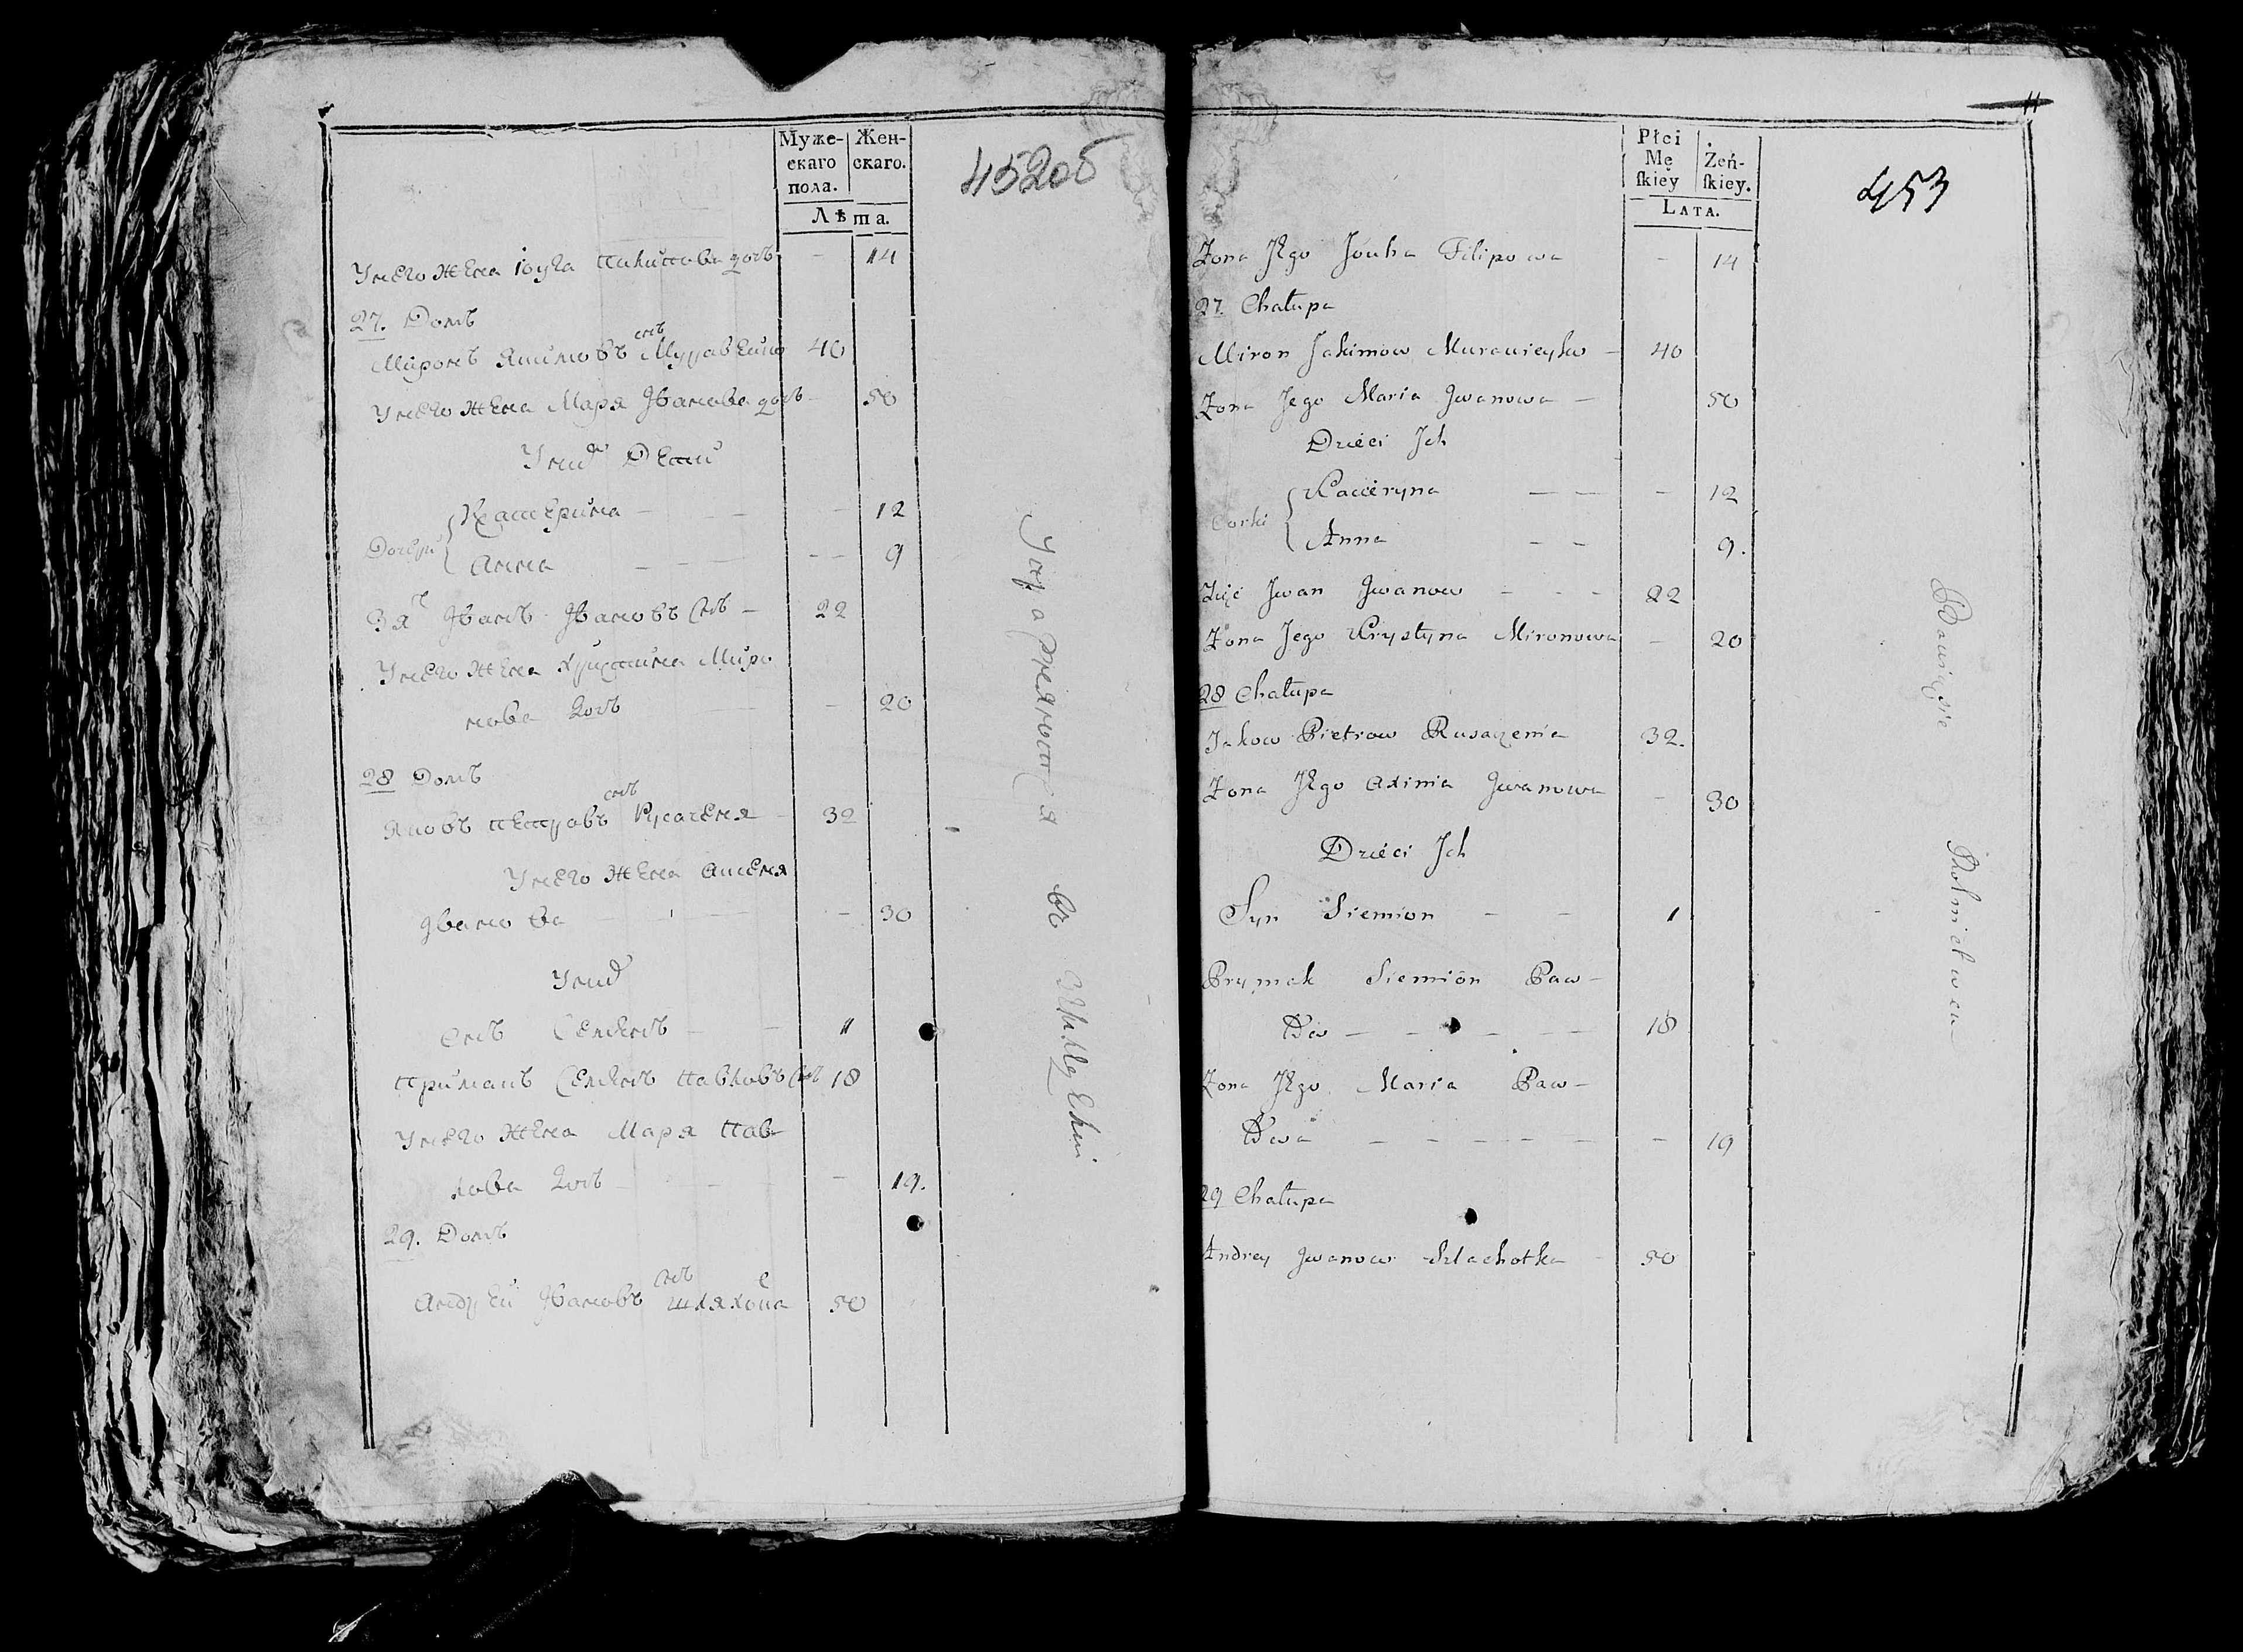 Муже-
скаго
пола.
Жен-
скаго.
Лѣта.
452об
У него жена Юуга Пилипова дочь - 14
27. Домъ
Миронъ Якимовъ снъ Муравейко 40
У него жена Маря Іванова дочь - 50
У них Дети
Дочери
Катерина - - - - 12
Анна - - - - - 9
Зять Іванъ Івановъ снъ - 22
У него жена Христина Миро
нова дочь - - 20
28 Домъ
Яковъ Петровъ снъ Русаченя - 32
У него жена Аксеня
Іванова - - - 30
У них
снъ Семенъ - - 1
Примакъ Семенъ Павловъ снъ 18
У него жена Маря Пав-
лова дочь - - - - 19.
29. Домъ
Андрей Івановъ снъ Шляхотка 50
въ
Płci
Mę
ſkiey
Żeń-
ſkiey.
LATA.
11
453
Żona Jego Jouha Filipowa - 14
27. Chałupa
Miron Jakimow Murawieyko - 40
Żona Jego Maria Jwanowa - 50
Dzieci Jch
Corki
Kacieryna - - - 12
Anna - - 9.
Zięć Jwan Jwanow - - - 22
Żona Jego Krystyna Mironowa - 20
28 Chałupa
Jakow Pietrow Rusaczenia 32.
Żona Jego Axinia Jwanowa - 30
Dzieci Jch
Syn Siemion - - 1
Prymak Siemion Paw-
łow - - - - - 18
Żona Jego Maria Paw-
łowa - - - - - - 19
29 Chałupa
Andrey Jwanow Szlachotka - 50